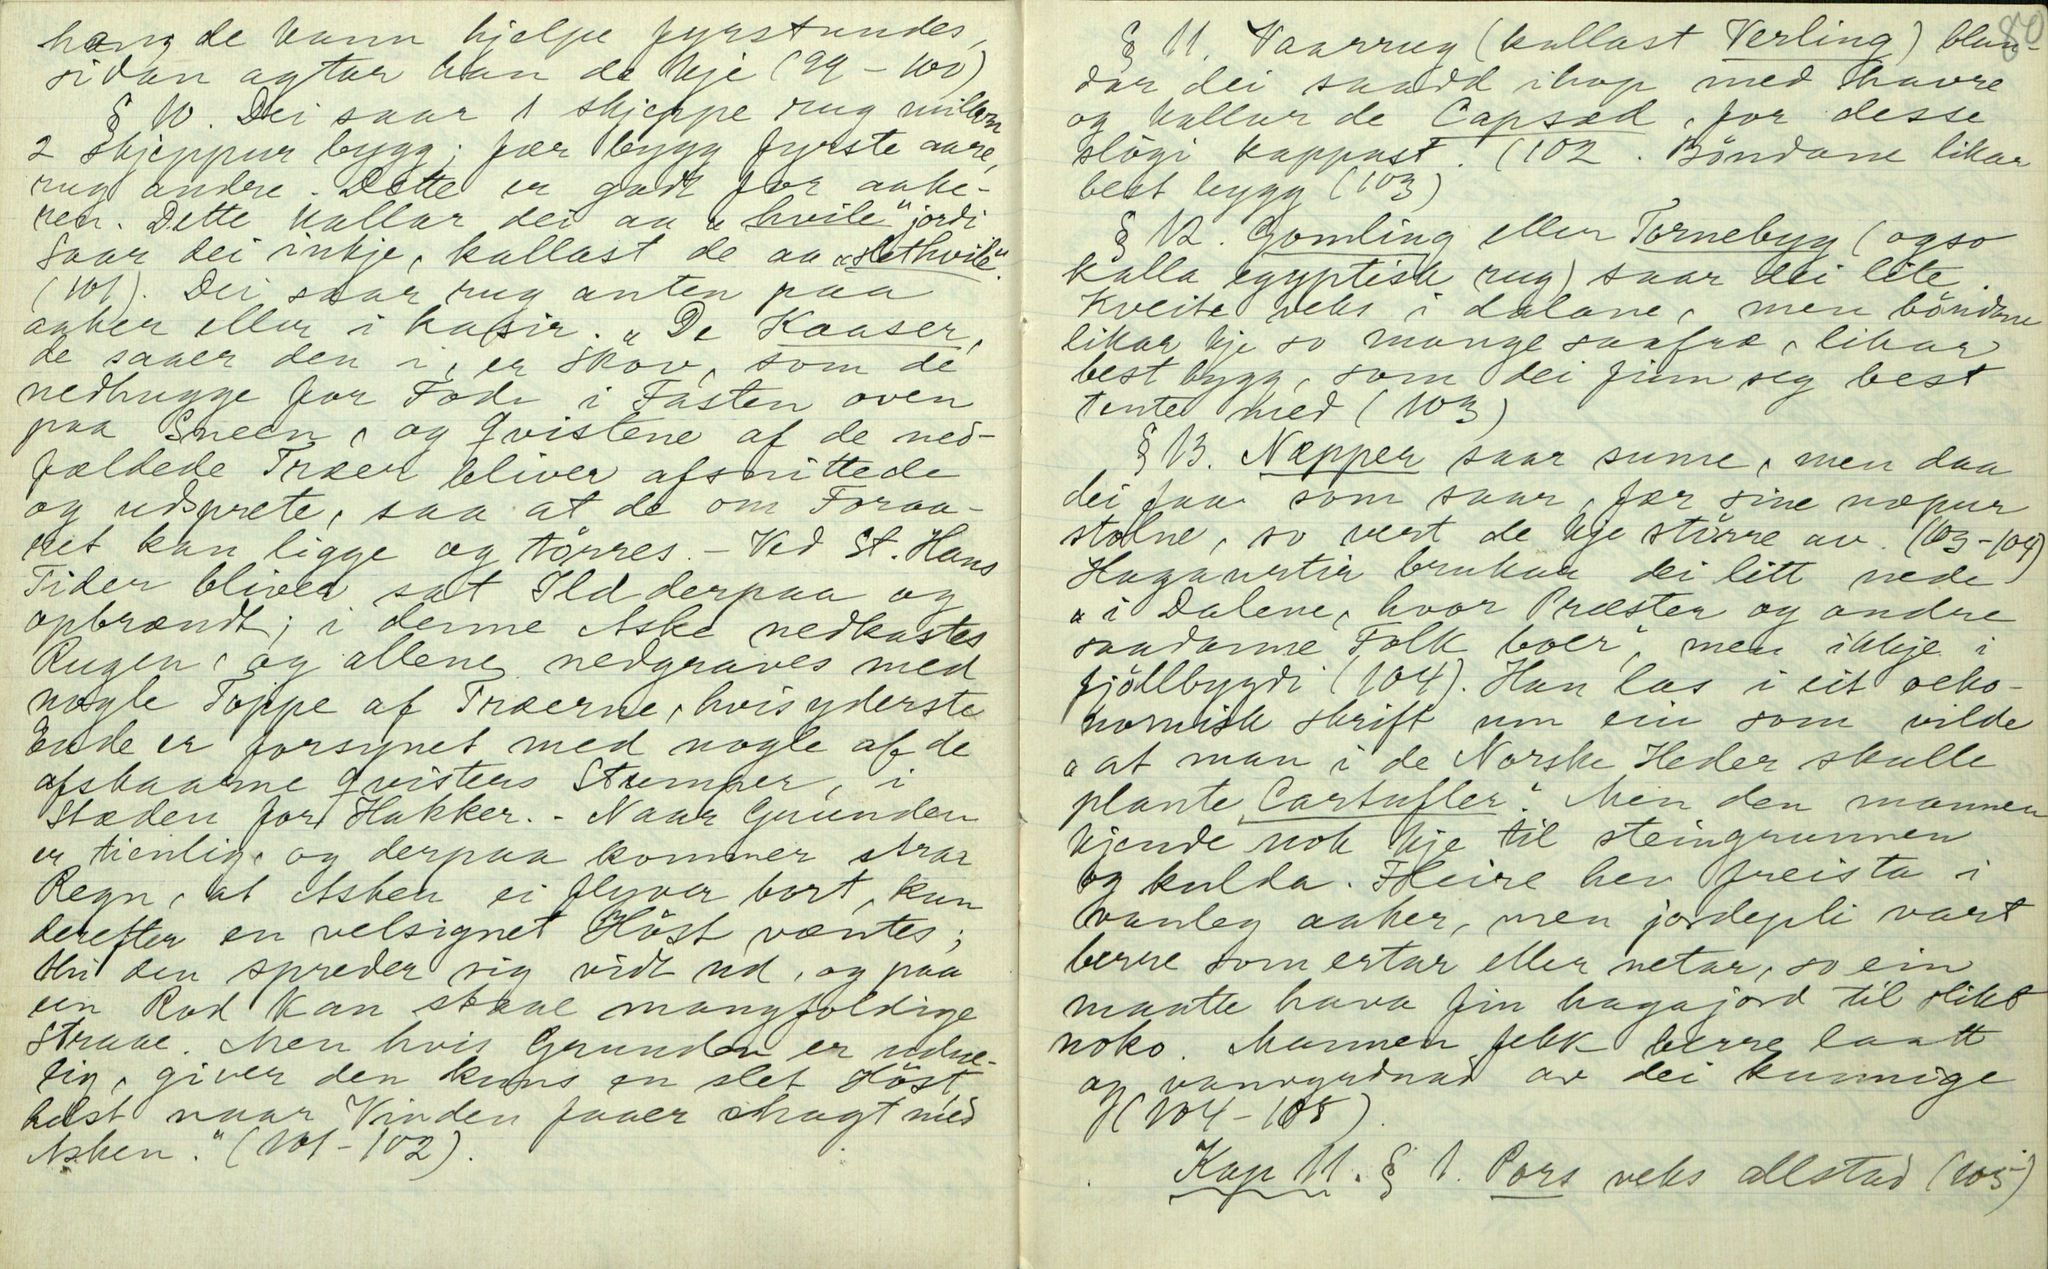 hang de kann hjelpe fyrstundes,
sidan agtar han de kje (99-100)
§ 10. Dei saar 1 skjeppe rug millom
2 skjeppur bygg; fær bygg fyrste aare,
rug andre. Dette er godt for aake-
ren. Dette kallar dei aa „hvile" jordi
Saar dei inkje, kallast de aa „slethvile".
(101). Dei saar rug anten paa
aaker eller i kaasir. „De Kaaser,
de saaer den i, er Skov, som de
nedhugge for Fode i Fasten oven
paa Sneen, og Qvistene af de ned-
fældede Træer bliver afsnittede
og udsprete, saa at de om Foraa-
ret kan ligge og törres. - Ved St. Hans
Tider bliver sat Ild derpaa og
opbrændt; i denne Aske nedkastes
Rugen, og allene nedgraves med
nogle Toppe af Træerne, hvis yderste
Ende er forsynet med nogle af de
afskaarne Qvisters Stumper, i
Stæden for Hakker. - Naar Grunden
er tienlig, og derpaa kommer strax
Regn, at Asken ei flyver bort, kan
derefter en velsignet Höst væntes;
thi den spreder sig vidt ud, og paa
een Rod kan staae mangfoldige
Straae. Men hvis Grunden er udue-
lig, giver den kuns en slet Höst,
helst naar Vinden faaer Magt med
Asken." (101-102).
80
§ 11. Vaarrug (kallast Verling) blan-
dar dei saadd ihop med havre
og kallar de Capsæd, for desse
slögi kappast. (102. Böndane likar
best bygg (103)
§ 12. Gomling eller Tornebyg (ogso
kalla egyptisk rug) saar dei lite.
Kveite veks i dalane, men böndane
likar kje so mange saafræ, likar
best bygg, som dei finn seg best
tente med (103)
§ 13. Næpper saar sume, men daa
dei faa som saar, fær sine næpur
stolne, so vert de kje större av. (103-104)
Hagaurtir brukar dei litt nede
„i Dalene, hvor Præster og andre
saadanne Folk boer", men ikkje i
fjöllbygdi (104). Han las i eit oeko-
nomisk skrift um ein som vilde
„at man i de Norske Heder skulle
plante Cartufler". Men den mannen
kjende nok kje til steingrunnen
og kulda. Fleire hev freista i
vanleg aaker, men jordepli vart
berre som ertar eller netar, so ein
maatte hava fin hagajord til slikt
noko. Mannen fekk berre laatt
og vanvyrdnad av dei kunnige
(104-105).
Kap 11. § 1. Pors veks allstad (105)